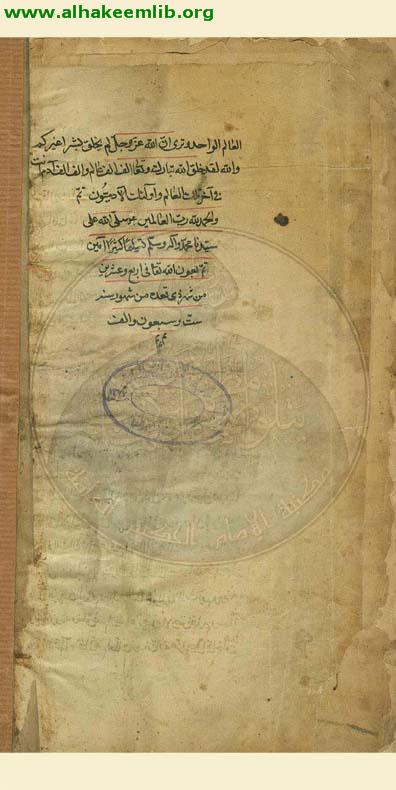 www.alhakeemlib.org
العالم الواحد وترى ان الله عز وجل لم يخلق بشرا غيركم
والله لقد خلق الله تبارك وتعالى الف الف عالم والف الف آدم انت
في آخر تلك العالم واولئك الآدميون تم
والحمد لله رب العالمين وصلى الله على
سيدنا محمد وآله وسلم تسليما كثيرا آمين
تم بعون الله تعالى في اربع وعشرين
من شهر ذي قعده من شهور سنه
ست وسبعون والف